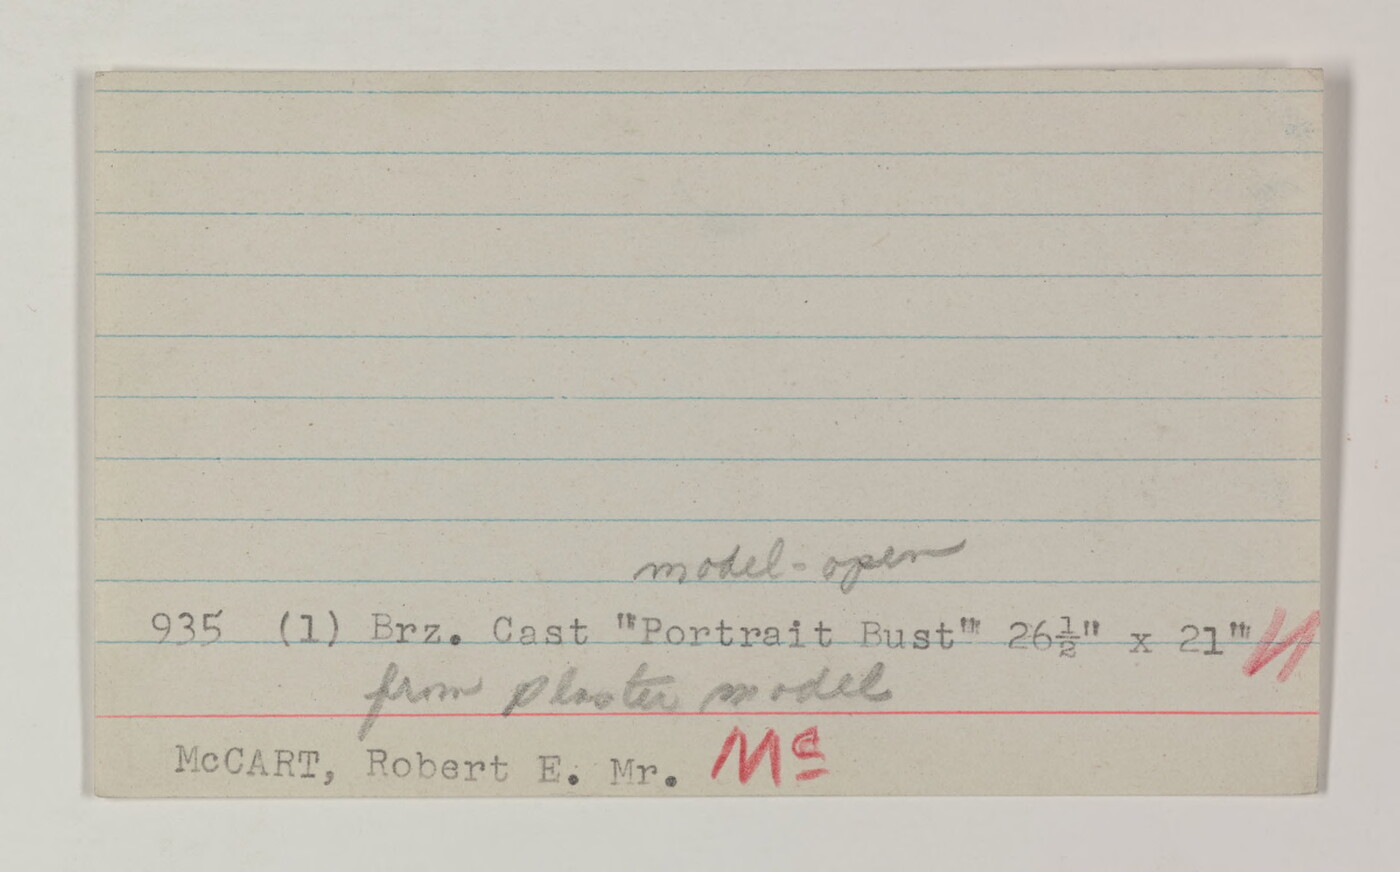 model - open
935 (1) Brz. Cast "'Portrait Bust"' 26½" x 21"'
from plaster model
McCART, Robert E. Mr. Mc